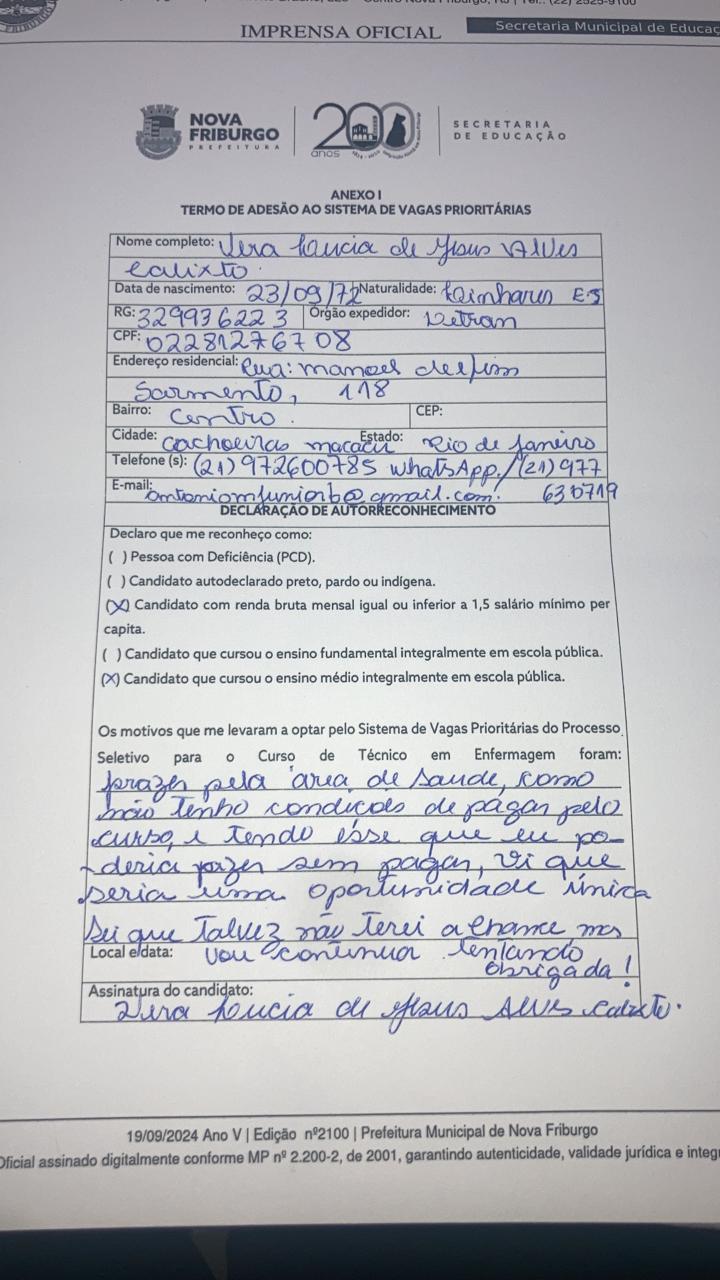 IMPRENSA OFICIAL
Secretaria Municipal de Educaç
NOVA
FRIBURGO
PREFEITURA
200
anos
SECRETARIA
DE EDUCAÇÃO
ANEXO I
TERMO DE ADESÃO AO SISTEMA DE VAGAS PRIORITÁRIAS
Nome completo: Vera Lucia de Jesus Alves
Calixto.
Data de nascimento: 23/09/72 Naturalidade: ES
RG: 329936223 Órgão expedidor: Detran
CPF: 02281276708
Endereço residencial: Rua: manoel delfim
Sarmento, 118
Bairro: Centro. CEP:
Cidade: cachoeiras macacu Estado: Rio de Janeiro
Telefone (s): (21) 972600785 whatsApp./(21) 977
E-mail: antoniomjuniorb@gmail.com. 630719
DECLARAÇÃO DE AUTORRECONHECIMENTO
Declaro que me reconheço como:
( ) Pessoa com Deficiência (PCD).
( ) Candidato autodeclarado preto, pardo ou indígena.
(X) Candidato com renda bruta mensal igual ou inferior a 1,5 salário mínimo per
capita.
( ) Candidato que cursou o ensino fundamental integralmente em escola pública.
(X) Candidato que cursou o ensino médio integralmente em escola pública.
Os motivos que me levaram a optar pelo Sistema de Vagas Prioritárias do Processo
Seletivo para o Curso de Técnico em Enfermagem foram:
prazer pela área de saude, como
não Tenho condições de pagar pelo
curso, e tendo esse que eu po-
deria fazer sem pagar, vi que
seria uma oportunidade única
Sei que Talvez não Terei a chance mas
Local e data: vou continua tentando
obrigada!
Assinatura do candidato:
Vera Lucia de Jesus Alves Calixto.
19/09/2024 Ano V | Edição nº2100 | Prefeitura Municipal de Nova Friburgo
Oficial assinado digitalmente conforme MP nº 2.200-2, de 2001, garantindo autenticidade, validade jurídica e integr